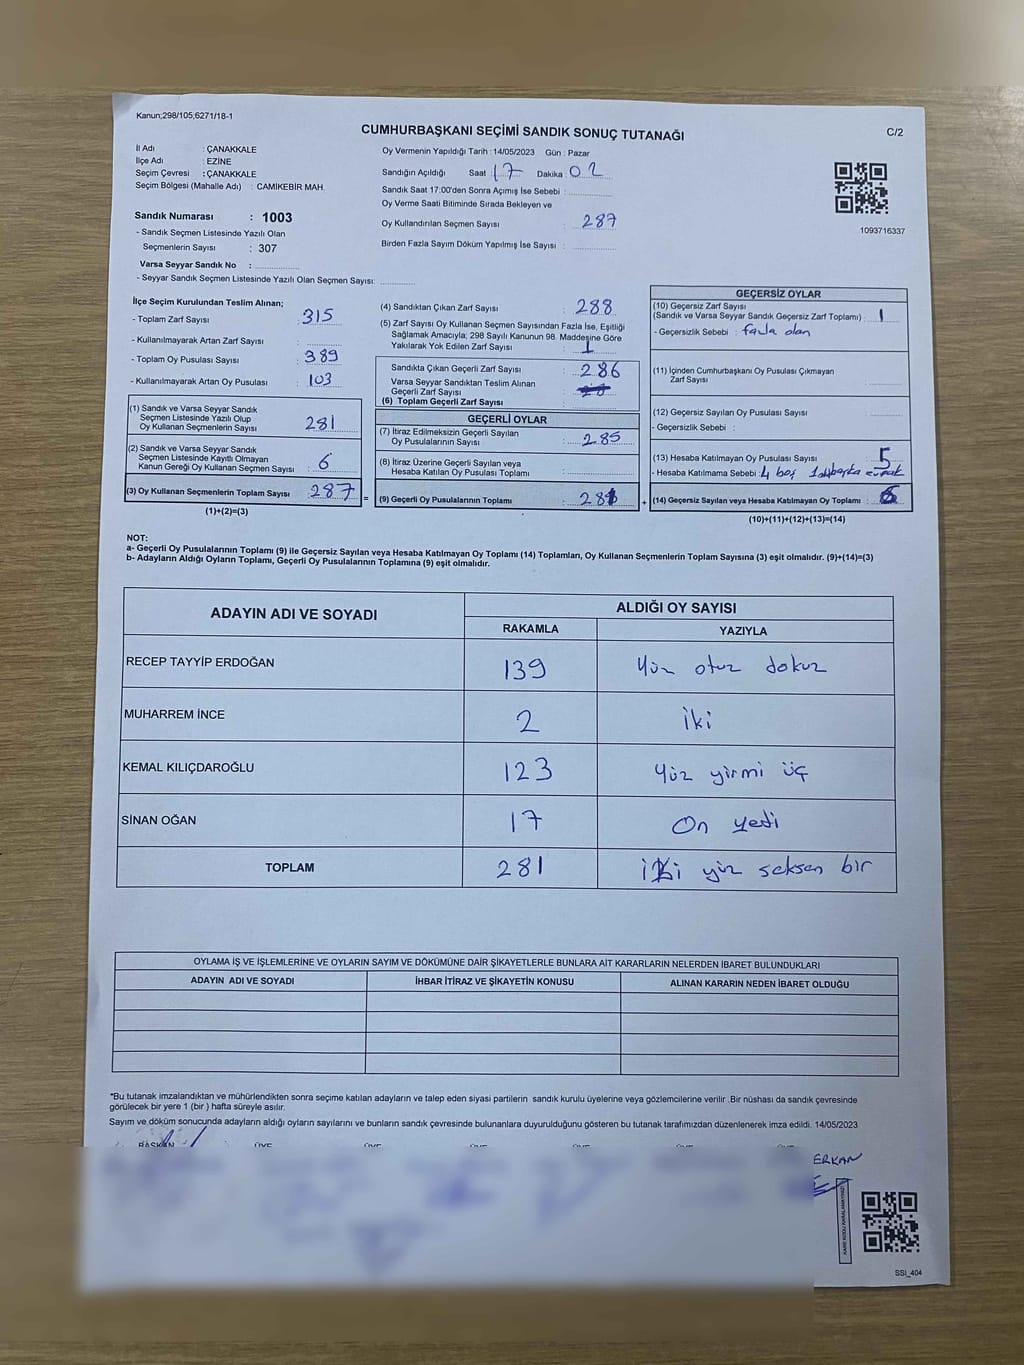 Kanun;298/105,6271/18-1
CUMHURBAŞKANI SEÇİMİ SANDIK SONUÇ TUTANAĞI
C/2
İl Adı : ÇANAKKALE
İlçe Adı : EZİNE
Seçim Çevresi : ÇANAKKALE
Seçim Bölgesi (Mahalle Adı) : CAMIKEBİR MAH.
Sandık Numarası : 1003
- Sandık Seçmen Listesinde Yazılı Olan
Seçmenlerin Sayısı : 307
Varsa Seyyar Sandık No :
- Seyyar Sandık Seçmen Listesinde Yazılı Olan Seçmen Sayısı:
Oy Vermenin Yapıldığı Tarih : 14/05/2023 Gün : Pazar
Sandığın Açıldığı Saat 17 Dakika 02
Sandık Saat 17:00'den Sonra Açımış İse Sebebi :
Oy Verme Saati Bitiminde Sırada Bekleyen ve
Oy Kullandırılan Seçmen Sayısı : 287
Birden Fazla Sayım Döküm Yapılmış İse Sayısı :
1093716337
İlçe Seçim Kurulundan Teslim Alınan;
- Toplam Zarf Sayısı 315
- Kullanılmayarak Artan Zarf Sayısı :
- Toplam Oy Pusulası Sayısı : 389
- Kullanılmayarak Artan Oy Pusulası : 103
(1) Sandık ve Varsa Seyyar Sandık
Seçmen Listesinde Yazılı Olup
Oy Kullanan Seçmenlerin Sayısı : 281
(2) Sandık ve Varsa Seyyar Sandık
Seçmen Listesinde Kayıtlı Olmayan
Kanun Gereği Oy Kullanan Seçmen Sayısı : 6
(3) Oy Kullanan Seçmenlerin Toplam Sayısı : 287 =
(1)+(2)=(3)
(4) Sandıktan Çıkan Zarf Sayısı : 288
(5) Zarf Sayısı Oy Kullanan Seçmen Sayısından Fazla İse, Eşitliği
Sağlamak Amacıyla; 298 Sayılı Kanunun 98. Maddesine Göre
Yakılarak Yok Edilen Zarf Sayısı : 1
Sandıkta Çıkan Geçerli Zarf Sayısı : 286
Varsa Seyyar Sandıktan Teslim Alınan
Geçerli Zarf Sayısı :
(6) Toplam Geçerli Zarf Sayısı :
GEÇERLİ OYLAR
(7) İtiraz Edilmeksizin Geçerli Sayılan
Oy Pusulalarının Sayısı : 285
(8) İtiraz Üzerine Geçerli Sayılan veya
Hesaba Katılan Oy Pusulası Toplamı :
(9) Geçerli Oy Pusulalarının Toplamı : 281 +
GEÇERSİZ OYLAR
(10) Geçersiz Zarf Sayısı
(Sandık ve Varsa Seyyar Sandık Geçersiz Zarf Toplamı) : 1
- Geçersizlik Sebebi : fazla olan
(11) İçinden Cumhurbaşkanı Oy Pusulası Çıkmayan
Zarf Sayısı :
(12) Geçersiz Sayılan Oy Pusulası Sayısı :
- Geçersizlik Sebebi :
(13) Hesaba Katılmayan Oy Pusulası Sayısı : 5
- Hesaba Katılmama Sebebi : 4 boş 1 başka evrak
(14) Geçersiz Sayılan veya Hesaba Katılmayan Oy Toplamı : 6
(10)+(11)+(12)+(13)=(14)
NOT:
a- Geçerli Oy Pusulalarının Toplamı (9) ile Geçersiz Sayılan veya Hesaba Katılmayan Oy Toplamı (14) Toplamları, Oy Kullanan Seçmenlerin Toplam Sayısına (3) eşit olmalıdır. (9)+(14)=(3)
b- Adayların Aldığı Oyların Toplamı, Geçerli Oy Pusulalarının Toplamına (9) eşit olmalıdır.
ADAYIN ADI VE SOYADI
ALDIĞI OY SAYISI
RAKAMLA YAZIYLA
RECEP TAYYİP ERDOĞAN 139 Yüz otuz dokuz
MUHARREM İNCE 2 iki
KEMAL KILIÇDAROĞLU 123 Yüz yirmi üç
SİNAN OĞAN 17 On yedi
TOPLAM 281 iki yüz seksen bir
OYLAMA İŞ VE İŞLEMLERİNE VE OYLARIN SAYIM VE DÖKÜMÜNE DAİR ŞİKAYETLERLE BUNLARA AİT KARARLARIN NELERDEN İBARET BULUNDUKLARI
ADAYIN ADI VE SOYADI İHBAR İTİRAZ VE ŞİKAYETİN KONUSU ALINAN KARARIN NEDEN İBARET OLDUĞU
*Bu tutanak imzalandıktan ve mühürlendikten sonra seçime katılan adayların ve talep eden siyasi partilerin sandık kurulu üyelerine veya gözlemcilerine verilir .Bir nüshası da sandık çevresinde
görülecek bir yere 1 (bir ) hafta süreyle asılır.
Sayım ve döküm sonucunda adayların aldığı oyların sayılarını ve bunların sandık çevresinde bulunanlara duyurulduğunu gösteren bu tutanak tarafımızdan düzenlenerek imza edildi. 14/05/2023
BAŞKAN ÜYE ÜYE ÜYE ÜYE ÜYE
ERKAN
SSİ_404